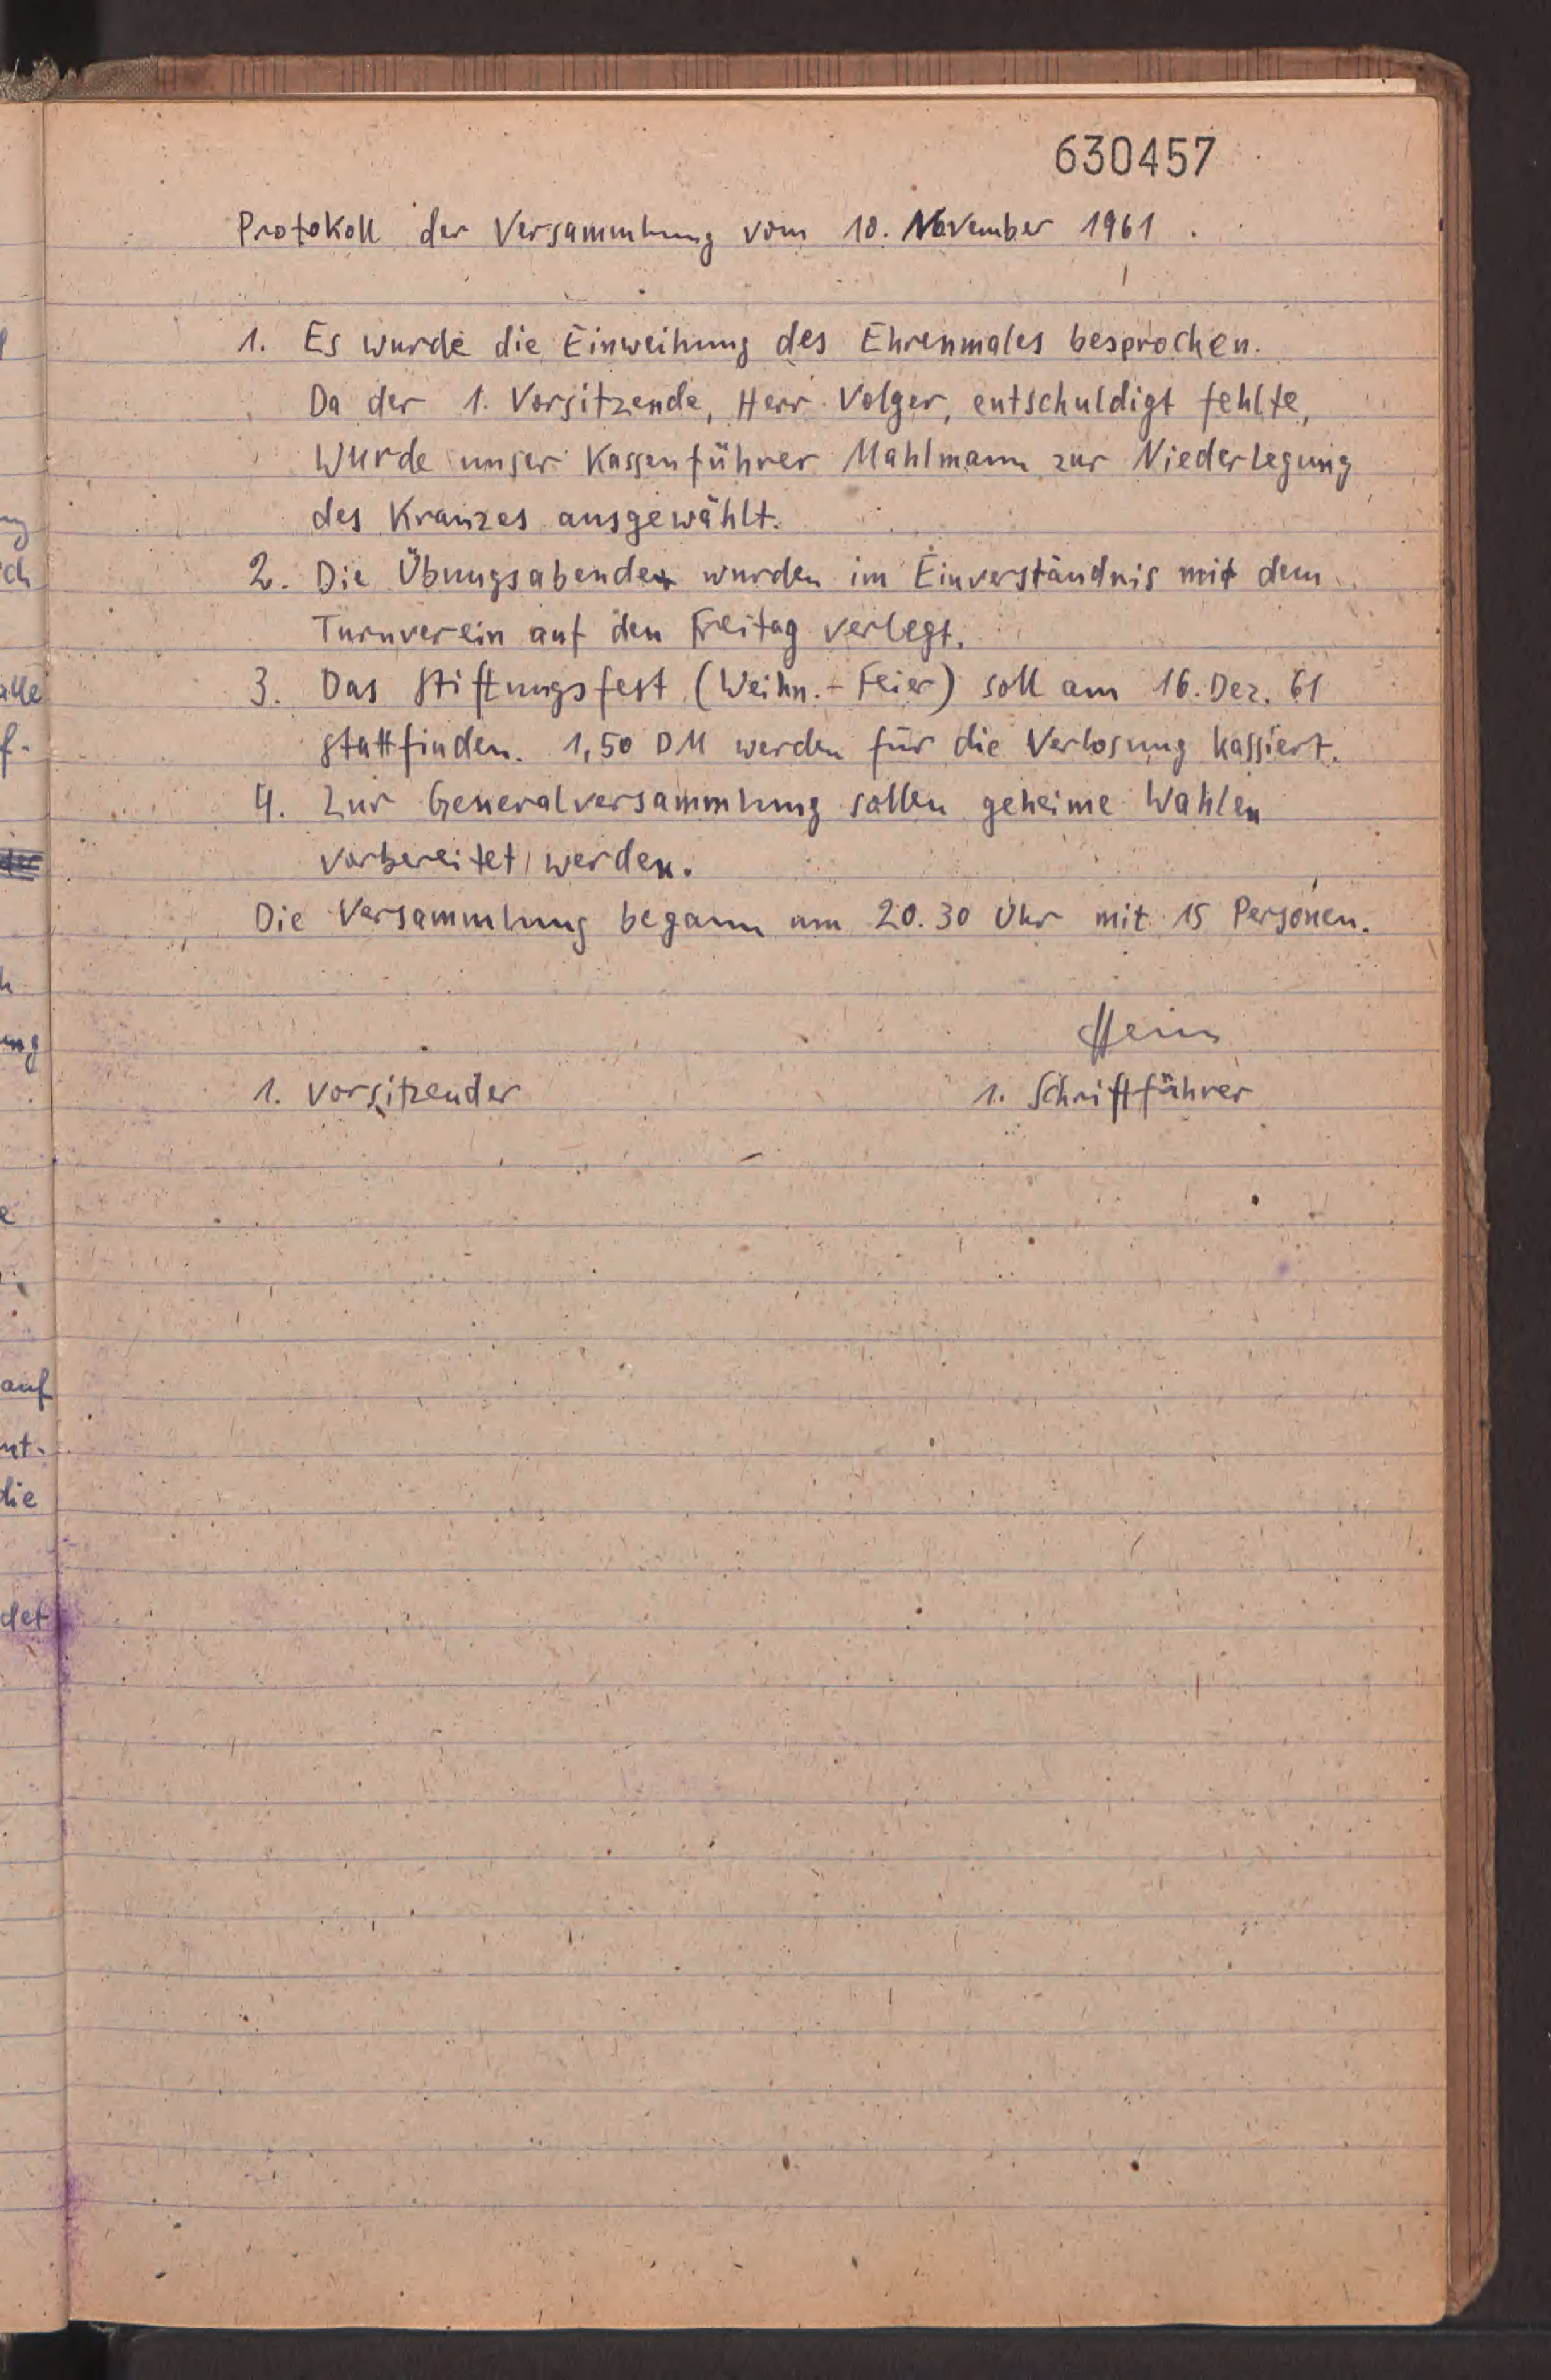 630457
Protokoll der Versammlung vom 10. November 1961.
1. Es wurde die Einweihung des Ehrenmales besprochen.
Da der 1. Vorsitzende, Herr Volger, entschuldigt fehlte,
wurde unser Kassenführer Mahlmann zur Niederlegung
des Kranzes ausgewählt.
2. Die Übungsabende wurden im Einverständnis mit dem
Turnverein auf den Freitag verlegt.
3. Das Stiftungsfest (Weihn.-Feier) soll am 16. Dez. 61
stattfinden. 1,50 DM werden für die Verlosung kassiert.
4. Zur Generalversammlung sollen geheime Wahlen
vorbereitet werden.
Die Versammlung begann um 20.30 Uhr mit 15 Personen.
Hein
1. Vorsitzender 1. Schriftführer